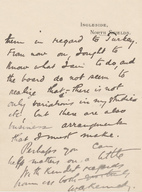 INGLESIDE,
NORTH
them in regard to Turkey.
From now on I ought to
know what I am to do and
the board do not seem to
realize that there is not
only variations in my studies
etc. but there are also
business arrangements
that I must make.
Perhaps you can
help matters on a little
With kindest regards
from us both